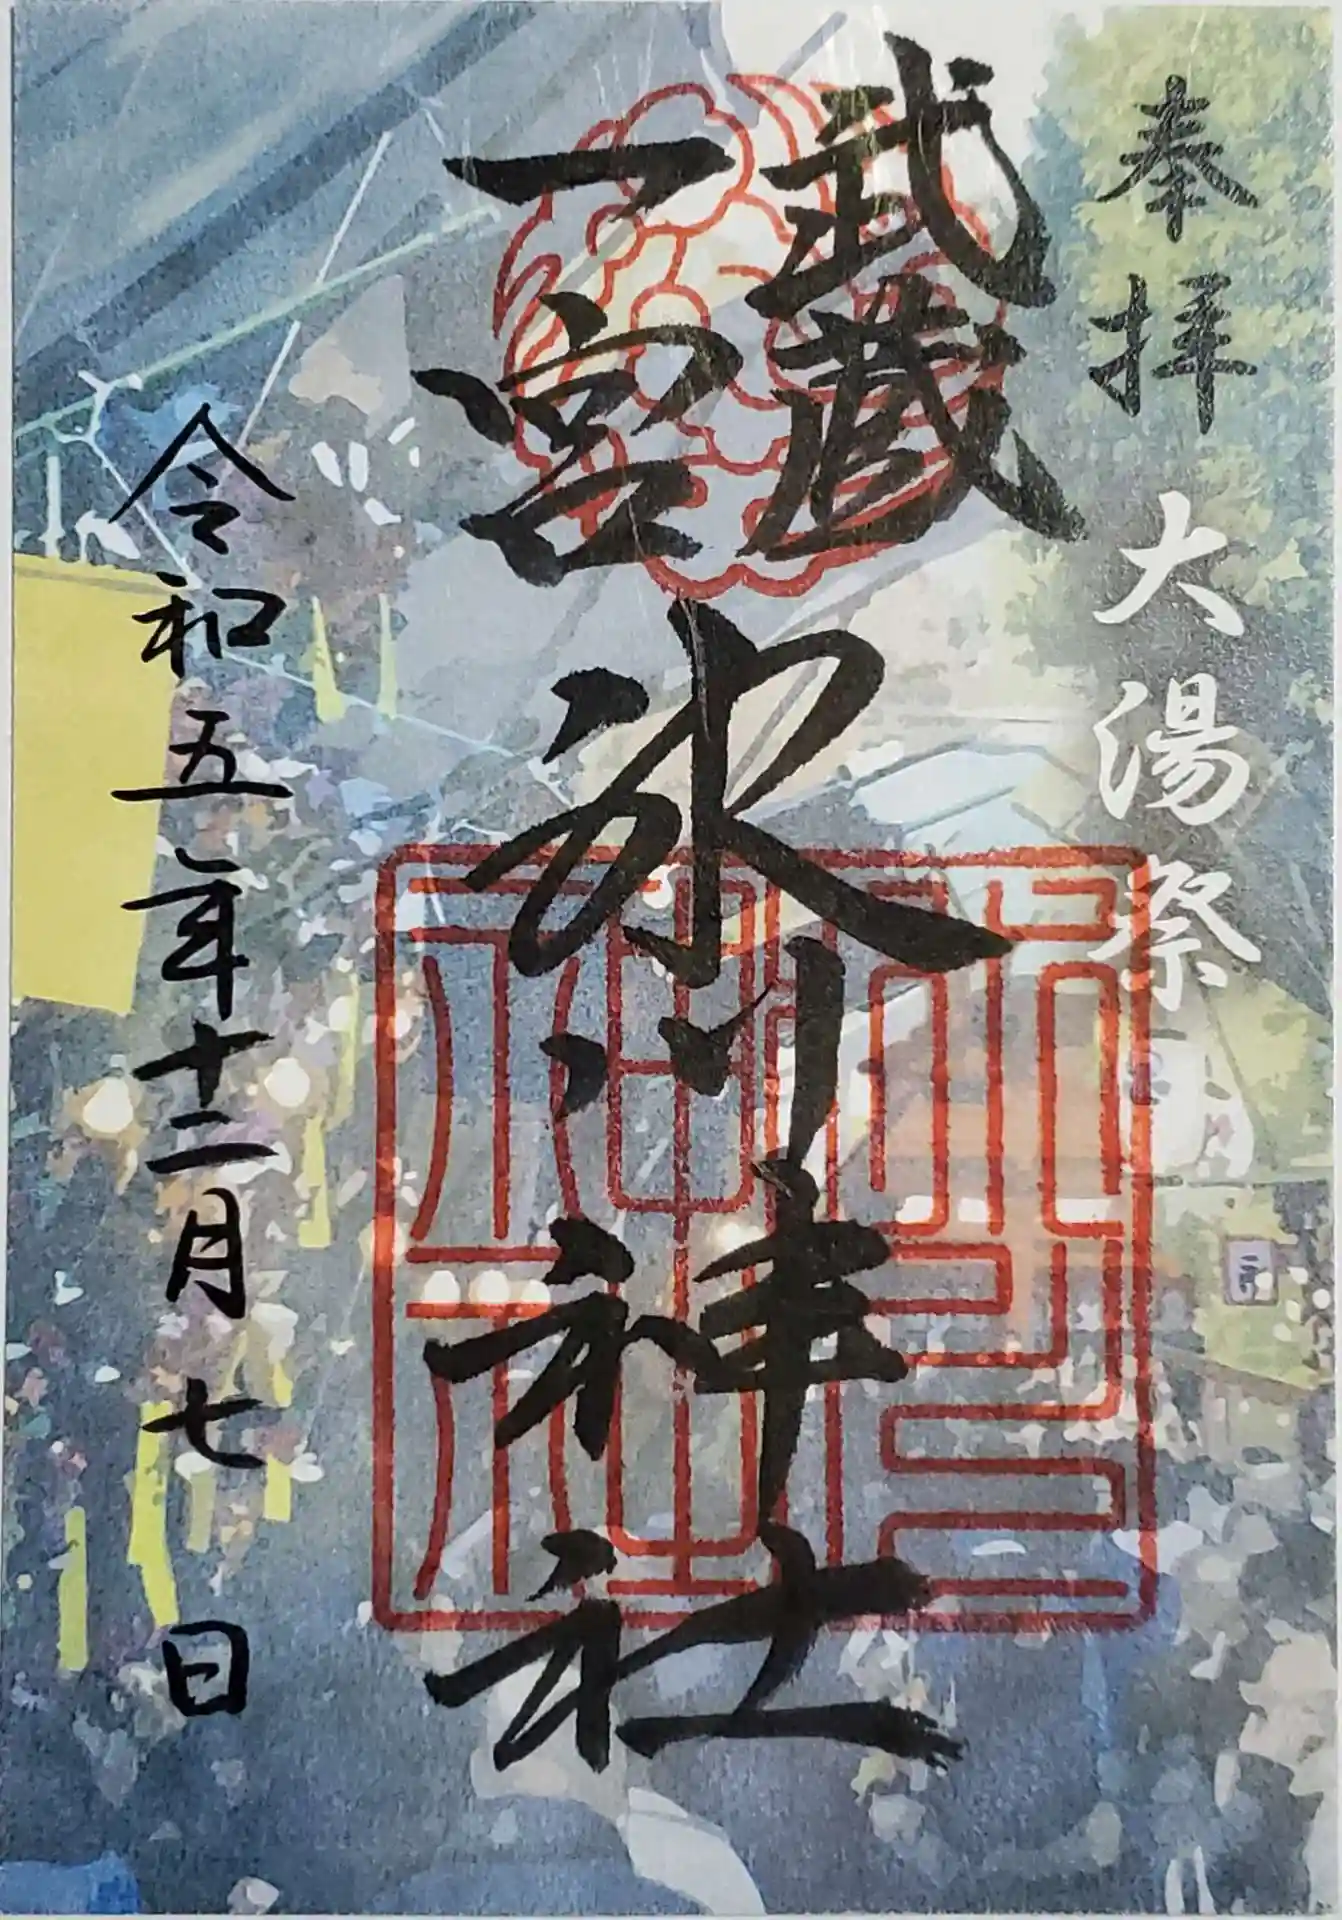 奉拝
大湯祭
武蔵
一宮
氷川神社
令和五年十二月七日
氷川
神社